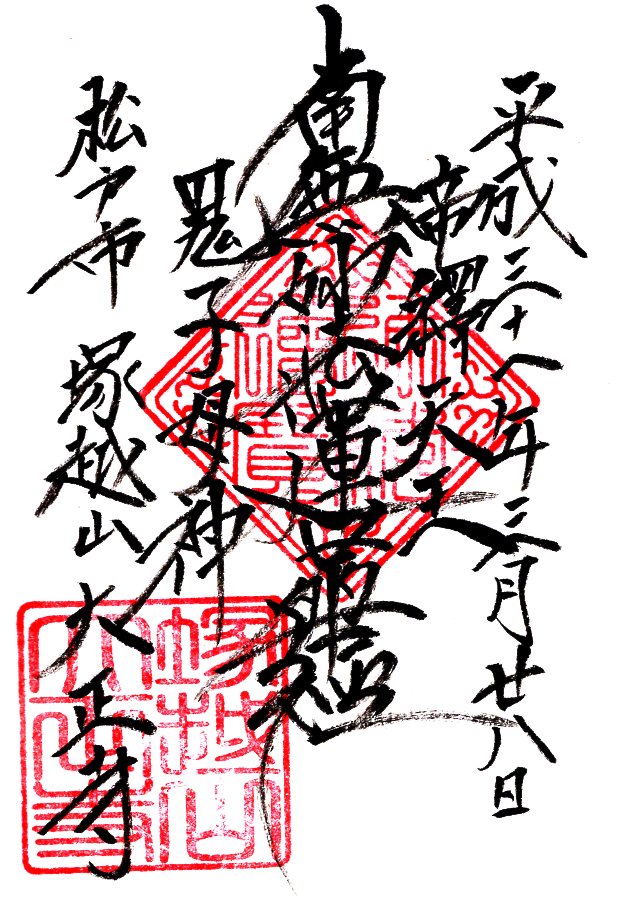 平成二十八年三月廿八日
帝釋天王
南無妙法蓮華經
鬼子母神
松戸市 塚越山 大正寺
塚越山
大正寺